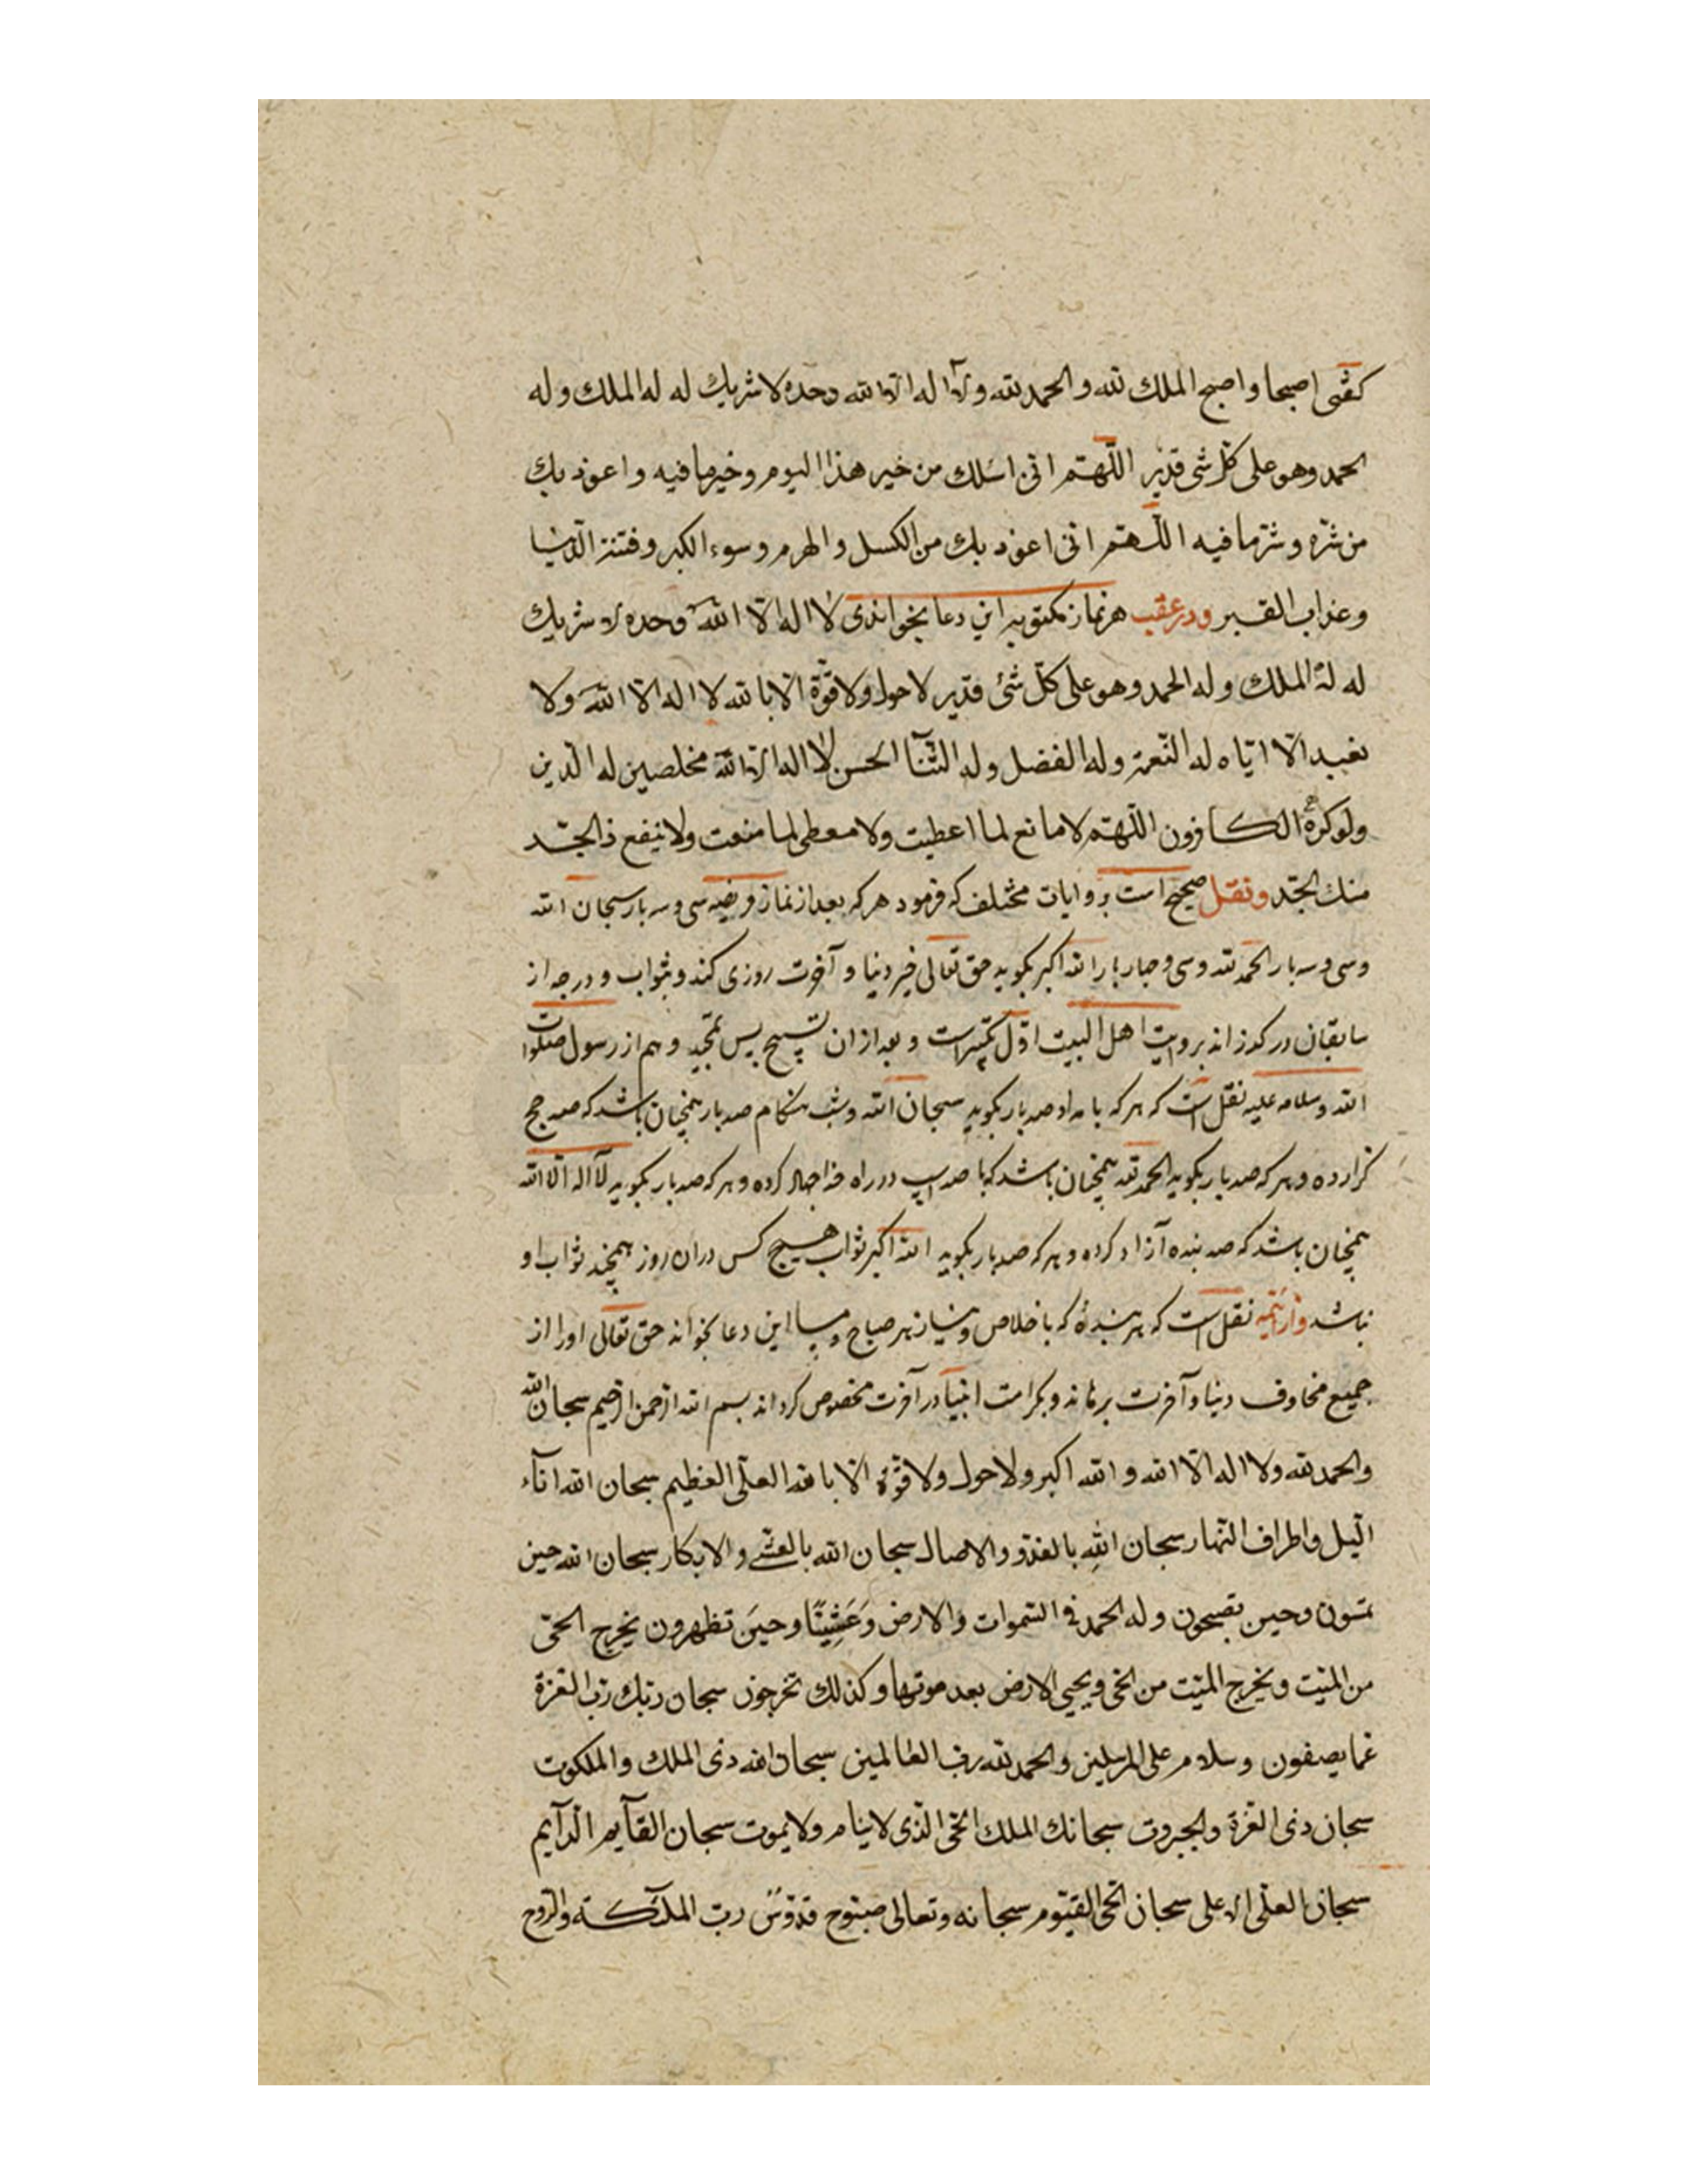 كفتى اصبحا واصبح الملك لله والحمد لله ولا اله الا الله وحده لا شريك له له الملك وله
الحمد وهو على كلّ شى قدير اللّهمّ انى اسئلك من خير هذا اليوم وخير ما فيه واعوذ بك
من شرّه وشرّ ما فيه اللّهمّ انى اعوذ بك من الكسل والهرم وسوء الكبر وفتنة الدّنيا
وعذاب القبر ودر عقب هر نماز مكتوبه اين دعا بخواندى لا اله الّا الله وحده لا شريك
له له الملك وله الحمد وهو على كلّ شئ قدير لا حول ولا قوّة الّا بالله لا اله الّا الله ولا
نعبد الّا ايّاه له النّعمة وله الفضل وله الثّنآ الحسن لا اله الّا الله مخلصين له الدّين
ولو كره الكافرون اللّهمّ لا مانع لما اعطيت ولا معطى لما منعت ولا ينفع ذا الجدّ
منك الجدّ ونقل صحيح است بروايات مختلف كه فرمود هر كه بعد از نماز فريضه سى وسه بار سبحان الله
وسى وسه بار الحمد لله وسى وچهار بار الله اكبر بكويد حق تعالى خير دنيا وآخرت روزى كند وبثواب ودرجه از
سابقان در كذراند بروايت اهل البيت اوّل تكبيراست وبعد ازان تسبيح پس تمجيد وهم از رسول صلوات
الله وسلامه عليه نقل است كه هر كه بامداد صد بار بكويد سبحان الله وشب هنكام صد بار همچنان باشد كه صد حج
كزارده وهر كه صد بار بكويد الحمد لله همچنان باشد كه با صد اسپ در راه خدا جهاد كرده وهر كه صد بار بكويد لا اله الّا الله
همچنان باشد كه صد بنده آزاد كرده وهر كه صد بار بكويد الله اكبر ثواب هيچ كس دران روز همچند ثواب او
نباشد واز ائمه نقل است كه هر بندۀ كه باخلاص ونياز هر صباح ومسا اين دعا بخواند حق تعالى او را از
جميع مخاوف دنيا وآخرت برهاند وبكرامت انبيآ در آخرت مخصوص كرداند بسم الله الرّحمن الرّحيم سبحان الله
والحمد لله ولا اله الّا الله والله اكبر ولا حول ولا قوّة الّا بالله العلّى العظيم سبحان الله انآء
الّيل واطراف النّهار سبحان اللهِ بالغدوّ والاصال سبحان الله بالعشى والابكار سبحان الله حين
تمسون وحين تصبحون وله الحمد فى السّموات والارض وَعَشِيًّا وحينَ تظهرون يخرج الحىّ
من الميّت ويخرج الميّت من الحى ويحيى الارض بعد موتها وكذلك تخرجون سبحان ربّك ربّ العزة
عما يصفون وسلام على المرسلين والحمد لله رب العالمين سبحان الله ذى الملك والملكوت
سبحان ذى العزة والجبروت سبحانك الملك الحىّ الّذى لا ينام ولا يموت سبحان القآيم الدآيم
سبحان العلّى الاعلى سبحان الحىّ القيّوم سبحانه وتعالى صبّوح قدّوسٌ ربّ الملآئكة والرّوح